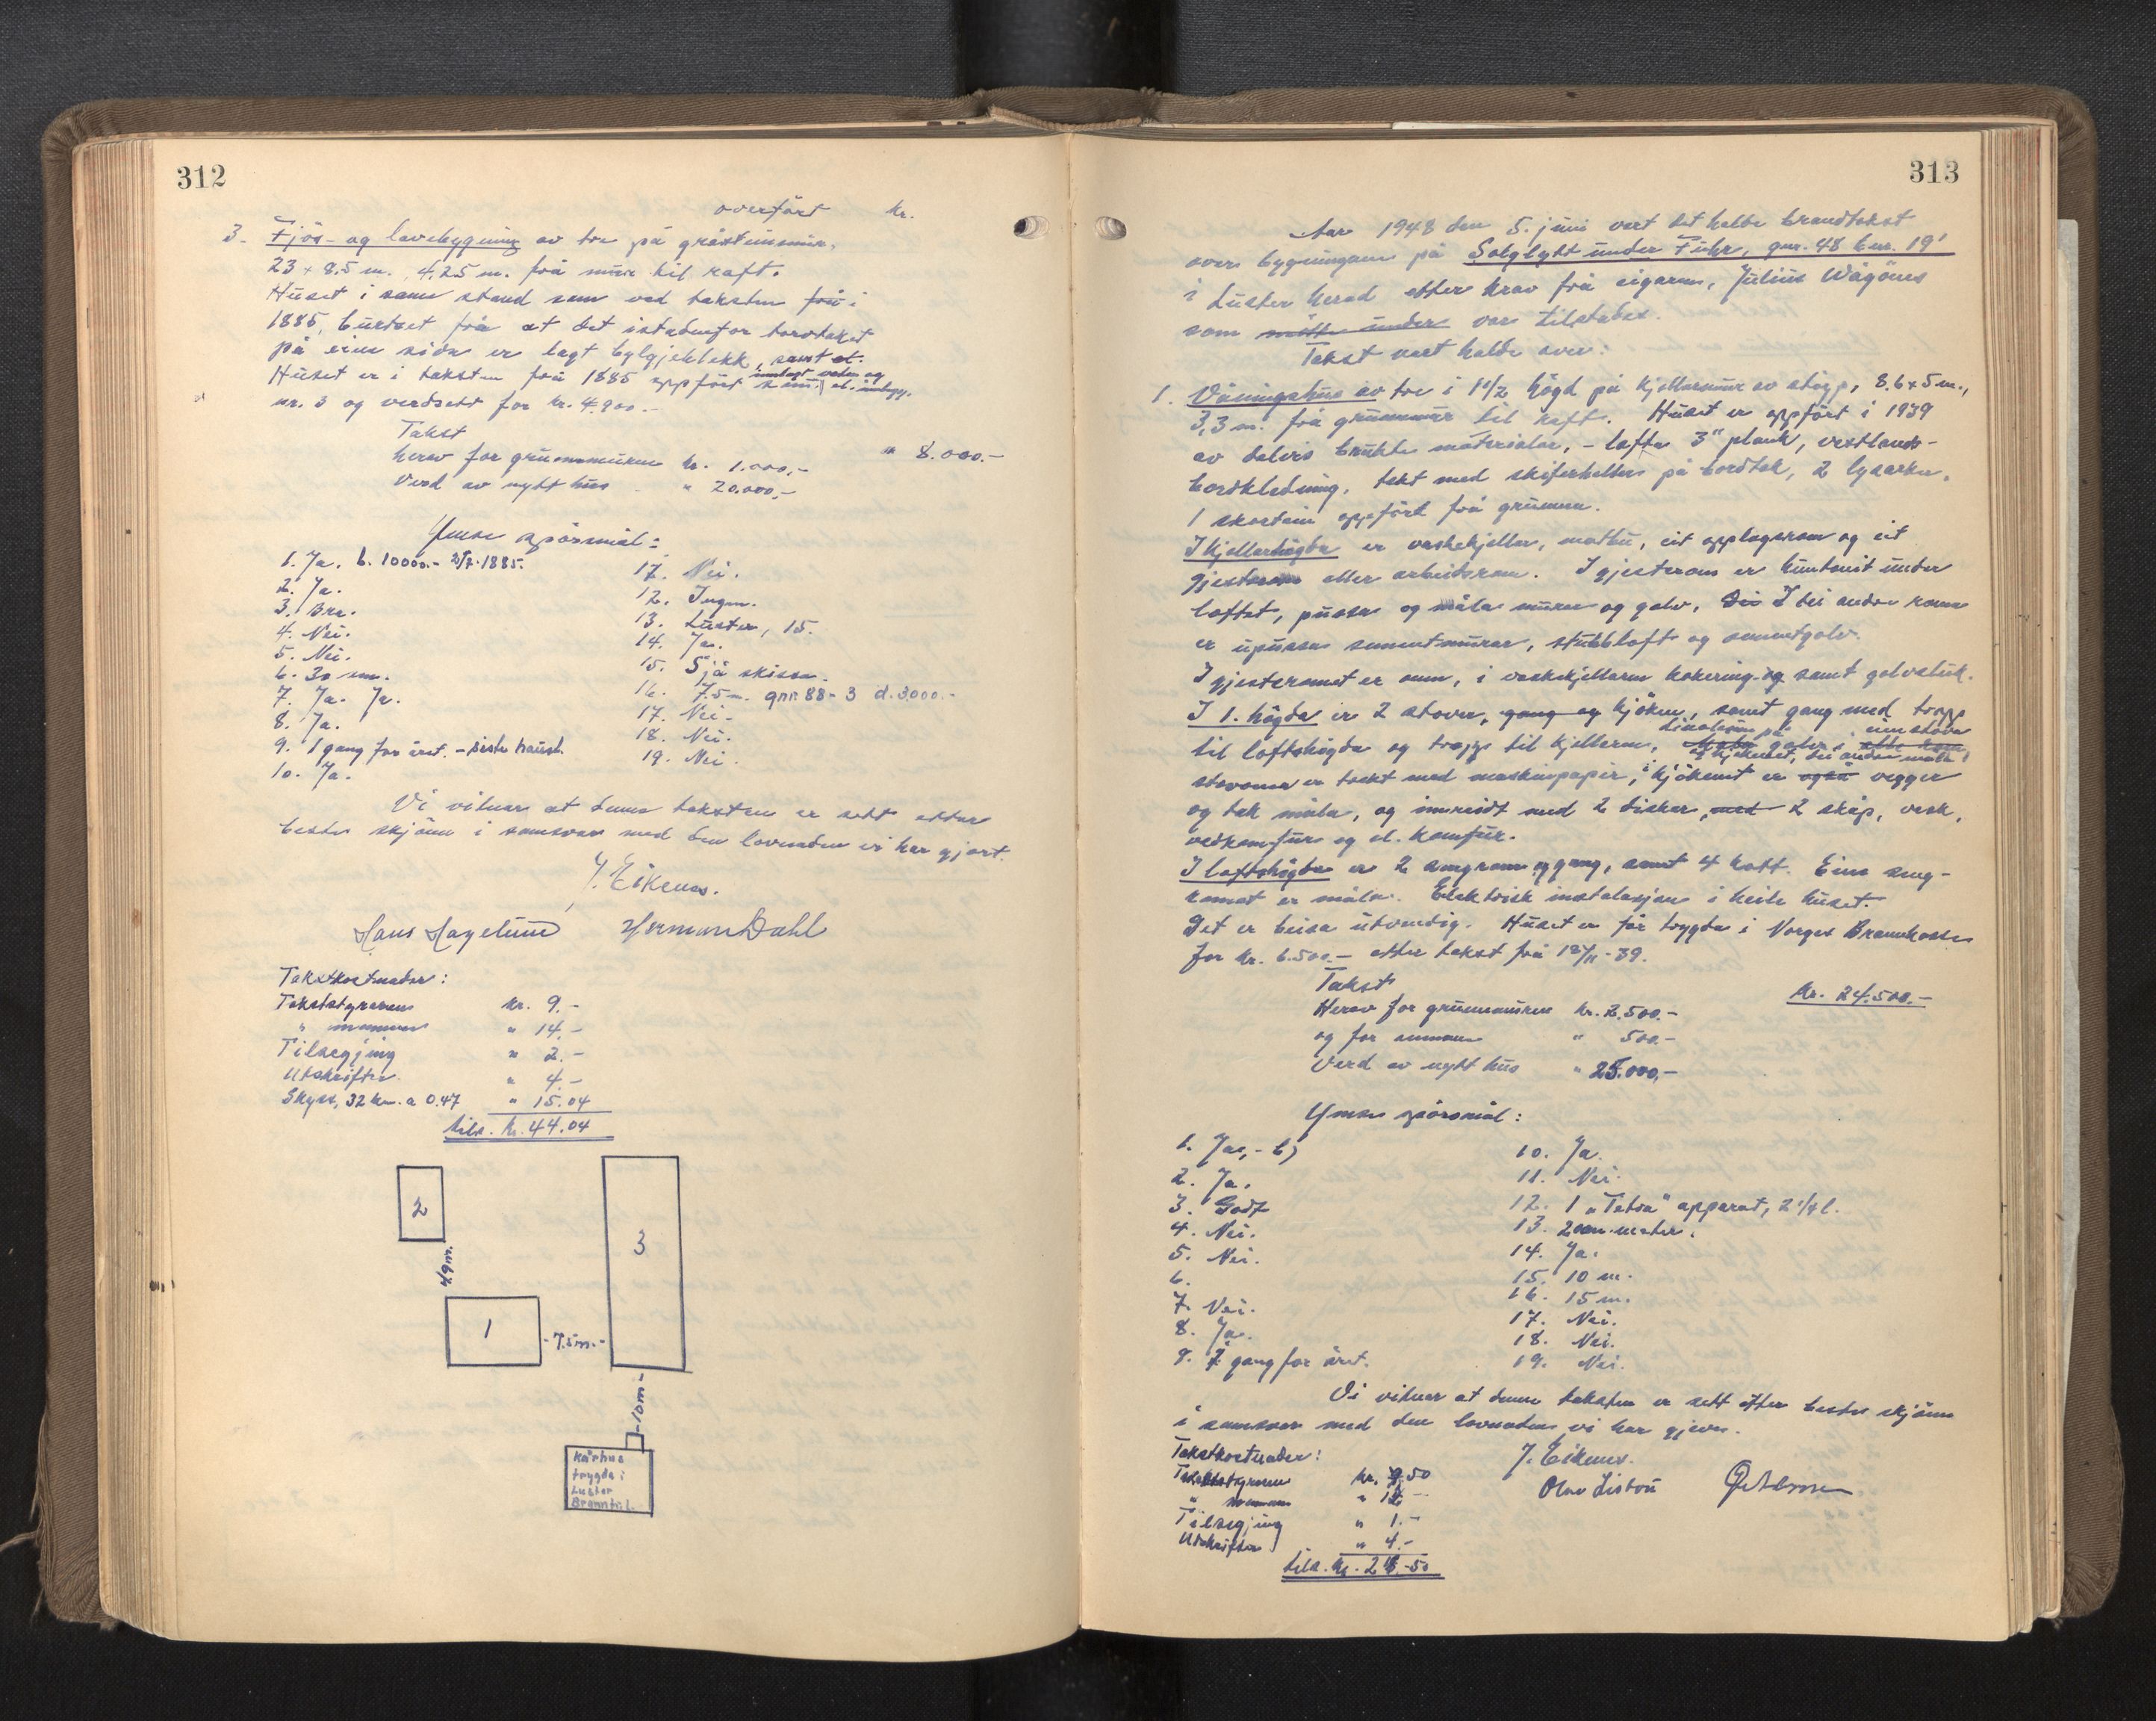 312
overført kr.
3. Fjös- og lövebygning av tre på gråsteinsmur,
23 x 8.5 m. 4.25 m. frå mur til raft.
Huset i same stand som ved taksten frå i
1885, burtset frå at det istadenfor tordtaket
på eine sida er lagt bylgjeblekk, samt el.
innlagt vatn og
Huset er i taksten frå 1885 oppført som el. innlegg.
nr. 3 og verdsett for kr. 4.900.-
Takst " 8.000.-
herav for grunnmuren kr. 1.000,-
Verd av nytt hus " 20.000,-
Ymse spörsmål:
1. Ja. b. 10000.- 2/7-1885.
2. Ja.
3. Bra.
4. Nei.
5. Nei.
6. 30 cm.
7. Ja. Ja.
8. Ja.
9. 1 gang for året. - siste haust
10. Ja.
17. Nei.
12. Ingen.
13. Luster, 15.
14. Ja.
15. Sjå skissa.
16. 7.5 m. gnr. 88-3 d. 3000.-
17. Nei.
18. Nei.
19. Nei.
Vi vitnar at denne taksten er sett etter
beste skjönn i samsvar med den lovnaden vi har gjort.
J. Eikenes.
Hans Hagelund Herman Dahl
Takstkostnader:
Takststyraren kr. 9.-
" mennene " 14.-
Tilsegjing " 2.-
Utskrifter " 4.-
Skyss, 32 km. a 0.47 " 15.04
tils. kr. 44.04
2
3
4.9 m.
1
- 7.5 m. -
- 10 m -
Kårhus
trygda i
Luster
Branntil.
313
Aar 1948 den 5. juni vart det halde brandtakst
over bygningane på Solglytt under Fuhr, gnr. 48 bnr. 19'
i Luster herad etter krav frå eigaren, Julius Vågönes
som møtte under var tilstades.
Takst vart halde over:
1. Våningshus av tre i 1 1/2 högd på kjellarmur av støyp, 8.6 x 5 m.,
3,3 m. frå grunnmur til raft. Huset er oppført i 1939
av delvis brukte materialar, - lafta 3" plank, vestlands-
bordkledning, tekt med skiferheller på bordtak, 2 lysarker.
1 skorstein oppført frå grunnen.
I kjellarhögda er vaskekjellar, matbu, eit opplagsrom og eit
gjesterom eller arbeidsrom. I gjesterom er huntonit under
loftet, pussa og måla murar og golv. Dei I dei andre romma
er upussa sementmurar, stubbloft og sementgolv.
I gjesteromet er omn, i vaskekjellaren kokering og samt golvsluk.
I 1. högda er 2 stover, gang og kjöken, samt gang med tropp
linoleum på eine stova
til loftshögda og trapp til kjellaren, golv i
og kjökenet, dei andre måla
stovone er trekt med maskinpapir, i kjökenet er også vegger
og tak måla, og innreidt med 2 diskar, med 2 skåp, vask,
vedkomfur og el. komfur.
I loftshögda er 2 sengrom og gang, samt 4 kott. Eine seng-
romet er måla. Elektrisk instalasjon i heile huset.
Det er beisa utvendig. Huset er för trygda i Norges Brannkasse
for kr. 6.500.- etter takst frå 12/11-39.
Takst kr. 24.500.-
Herav for grunnmuren kr. 2.500.-
og for omnen " 500.-
Verd av nytt hus " 25.000,-
Ymse spörsmål:
1. Ja, - b)
2. Ja.
3. Godt
4. Nei.
5. Nei.
6.
7. Nei.
8. Ja.
9. 2 gang for året.
10. Ja.
11. Nei.
12. 1 "Tetra" apparat, 2 1/4 l.
13. 200 m. meter.
14. Ja.
15. 10 m.
16. 15 m.
17. Nei.
18. Nei.
19. Nei.
Vi vitnar at denne taksten er sett etter beste skjönn
i samsvar med den lovnaden vi har gjeve.
Takstkostnader:
Takststyraren kr. 9.50
" mennene " 12 -
Tilsegjing " 1.-
Utskrifter " 4.-
tils. kr. 26.50
J. Eikenes.
Olav Liston